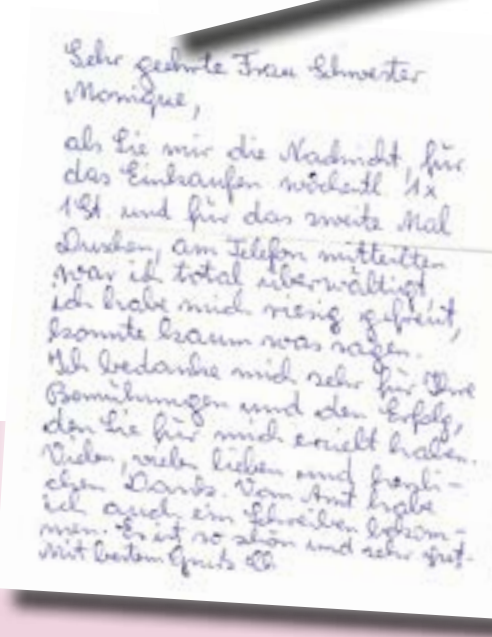 Sehr geehrte Frau Schwester
Monique,
als Sie mir die Nachricht, für
das Einkaufen wöchentl. 1x
1 St. und für das zweite Mal
Duschen, am Telefon mitteilten
war ich total überwältigt,
ich habe mich riesig gefreut,
konnte kaum was sagen.
Ich bedanke mich sehr für Ihre
Bemühungen und den Erfolg,
den Sie für mich erzielt haben.
Vielen, vielen lieben und herzli-
chen Dank. Vom Amt habe
ich auch ein Schreiben bekom-
men. Es ist so schön und sehr gut.
Mit bestem Gruß